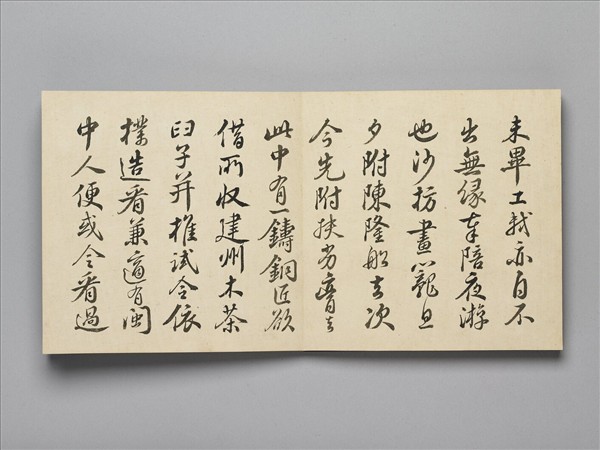 未畢工軾亦自不
出無緣奉陪夜游
也沙枋畫籠旦
夕附陳隆船去次
今先附扶劣膏去
此中有一鑄銅匠欲
借所收建州木茶
臼子并椎試令依
樣造看兼適有閩
中人便或令看過